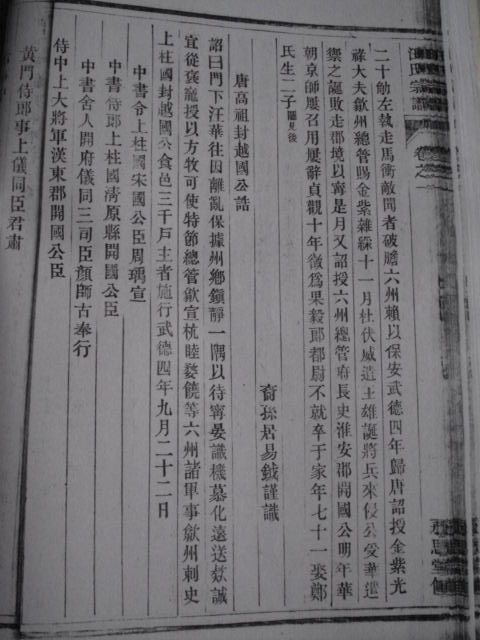 汪氏宗譜
卷之一
二十觔左執走馬衝敵聞者破膽六州賴以保安武德四年歸唐詔授金紫光
祿大夫歙州總管賜金紫雜綵十一月杜伏威遣王雄誕將兵來侵公受華進
禦之誕敗走郡境以寧是月又詔授六州總管府長史淮安郡開國公明年華
朝京師屢召用屢辭貞觀十年徵為果毅郎都尉不就卒于家年七十一娶鄭
氏生二子圖見後
裔孫居易鉞謹識
唐高祖封越國公誥
詔曰門下汪華往因離亂保據州鄉鎮靜一隅以待寧晏識機慕化遠送款誠
宜從褒寵授以方牧可使持節總管歙宣杭睦婺饒等六州諸軍事歙州刺史
上柱國封越國公食邑三千戶主者施行武德四年九月二十二日
中書令上柱國宋國公臣周瑀宣
中書侍郎上柱國清原縣開國公臣
中書舍人開府儀同三司臣顏師古奉行
侍中上大將軍漢東郡開國公臣
黃門侍郎事上儀同臣君肅